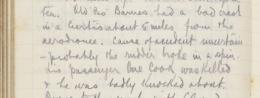 ten. Old Pro Barnes, had a bad crash
in a Curtiss about 5 miles from the
aerodrome. Cause of accident uncertain
- probably the rudder broke in a spin
his passenger Cook was killed
& he was badly knocked about.